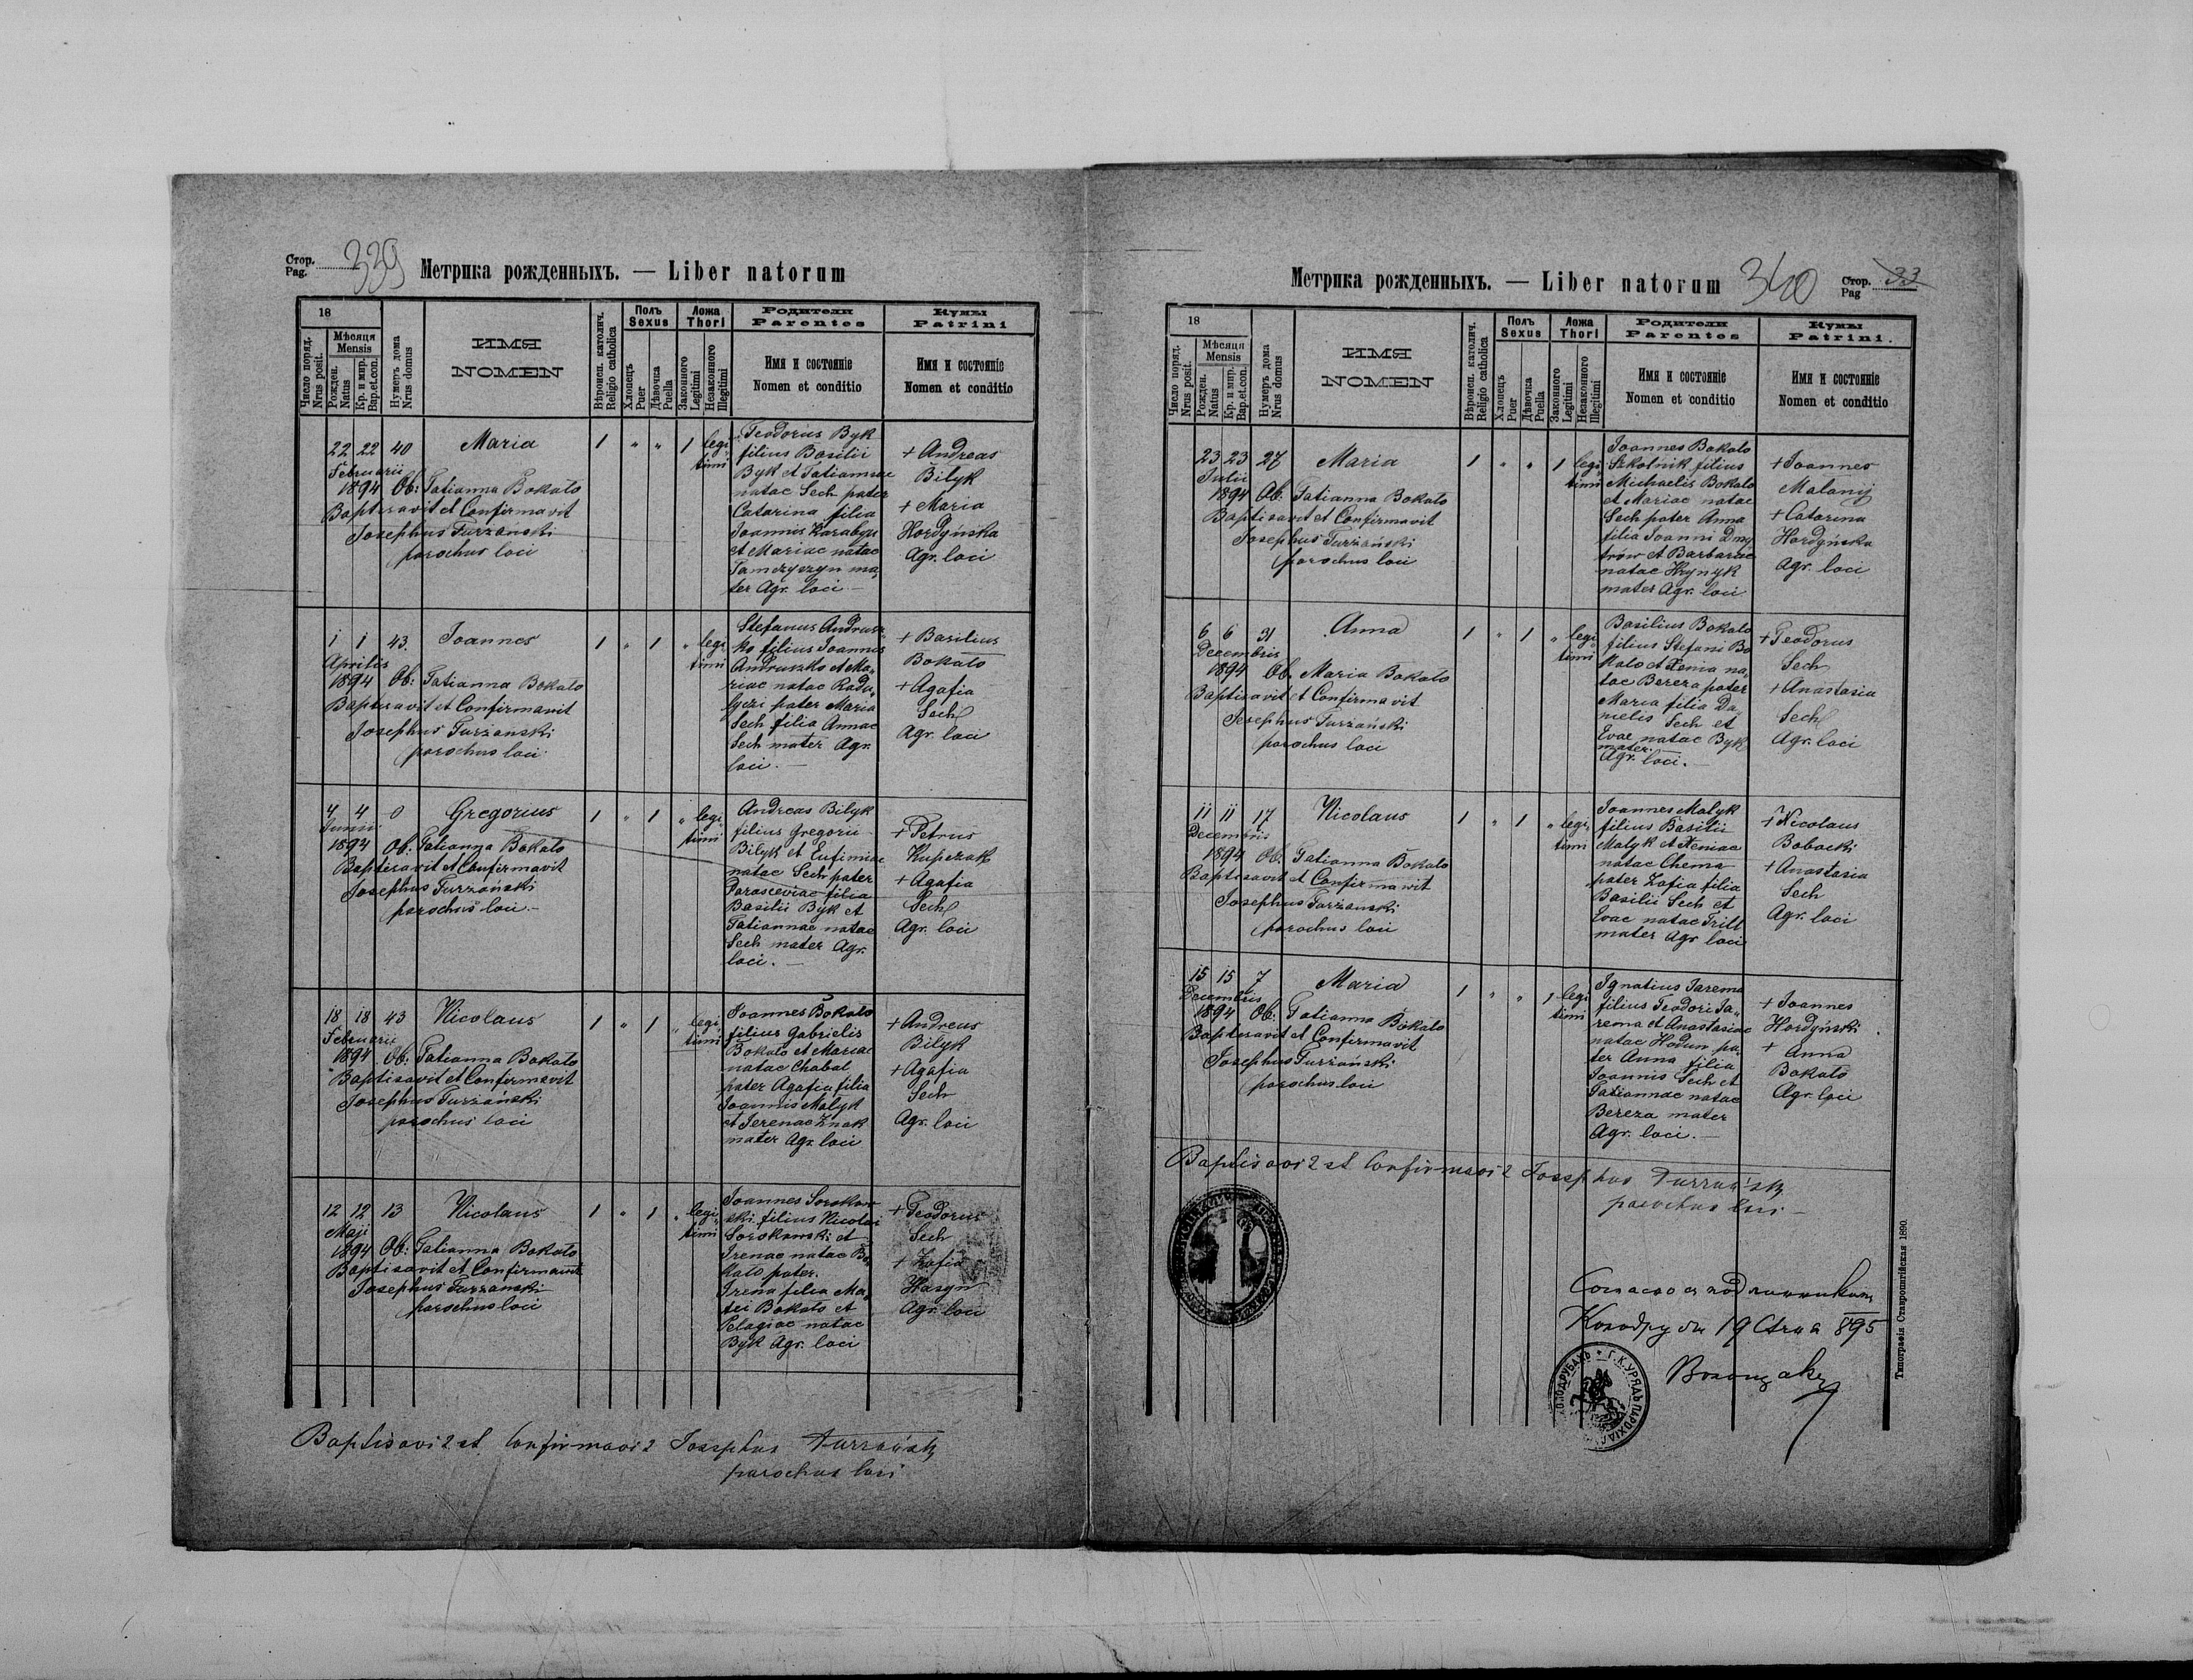 Стор.
Pag. 339
Метрика рожденныхъ. — Liber natorum
18
Число поряд.
Nrus posit.
Мѣсяця
Mensis
Рожден.
Natus
Кр. и мир.
Bap.et.con.
Нумеръ дома
Nrus domus
ИМЯ
NOMEN
Вѣроисп. католич.
Religio catholica
Полъ
Sexus
Хлопецъ
Puer
Дѣвочка
Puella
Ложа
Thori
Законного
Legitimi
Незаконного
Illegitimi
Родители
Parentes
Имя и состоянiе
Nomen et conditio
Кумы
Patrini
Имя и состоянiе
Nomen et conditio
22 22 40 Maria 1 " " 1 legi
timi
Februarii
1894 Ob: Tatianna Bokało
Baptisavit et Confirmavit
Josephus Turzański
parochus loci
Teodorus Byk
filius Basilii
Byk et Tatiannae
natae Sech pater
Catarina filia
Joannis Karabyn
et Mariae natae
Tamczyszyn ma,
ter Agr. loci —
+ Andreas
Bilyk
+ Maria
Hordyńska
Agr. loci
1 1 43. Joannes 1 " 1 " legi
timi
Aprilis
1894 Ob: Tatianna Bokało
Baptisavit et Confirmavit
Josephus Turzanski
parochus loci
Stefanus Andrusz,
ko filius Joannis
Andruszko et Ma,
riae natae
pater Maria
Sech filia Annae
Sech mater Agr.
loci. —
+ Basilius
Bokało
+ Agafia
Sech
Agr. loci
4 4 0 Gregorius 1 " 1 " legi
timi
Junii
1894 Ob: Tatianna Bokało
Baptisavit et Confirmavit
Josephus Turzański
parochus loci. —
Andreas Bilyk
filius Gregorii
Bilyk et Eufimiae
natae Sech pater
Parasceviae filia
Basilii Byk et
Tatiannae natae
Sech mater Agr.
loci. —
+ Petrus
Kupczak
+ Agafia
Sech
Agr. loci
18 18 43 Nicolaus 1 " 1 " legi
timi
Februarii
1894 Ob: Tatianna Bokało
Baptisavit et Confirmavit
Josephus Turzański
parochus loci
Joannes Bokało
filius Gabrielis
Bokało et Mariae
natae Chabal
pater Agafia filia
Joannis Malyk
et Jerenae Znak
mater Agr. loci
+ Andreas
Bilyk
+ Agafia
Sech
Agr. loci
12 12 13 Nicolaus 1 " 1 " legi
timi
Maji
1894 Ob: Tatianna Bokało
Baptisavit et Confirmavit
Josephus Turzanski
parochus loci
Joannes Sorokow
ski filius Nicolai
Sorokowski et
Irenae natae Bo,
kało pater.
Irena filia Ma,
tei Bokało et
Pelagiae natae
Byk Agr. loci
+ Teodorus
Sech
+ Zofia
Hasyn
Agr. loci
Baptisavit et Confirmavit Josephus Turzański
parochus loci
Метрика рожденныхъ. — Liber natorum 340 Стор.
Pag 33
18
Число поряд.
Nrus posit.
Мѣсяця
Mensis
Рожден.
Natus
Кр. и мир.
Bap.et.con.
Нумеръ дома
Nrus domus
ИМЯ
NOMEN
Вѣроисп. католич.
Religio catholica
Полъ
Sexus
Хлопецъ
Puer
Дѣвочка
Puella
Ложа
Thori
Законного
Legitimi
Незаконного
Illegitimi
Родители
Parentes
Имя и состоянiе
Nomen et conditio
Кумы
Patrini.
Имя и состоянiе
Nomen et conditio
23 23 27 Maria 1 " " 1 legi
timi
Julii
1894 Ob. Tatianna Bokało
Baptisavit et Confirmavit
Josephus Turzański
parochus loci
Joannes Bokało
Szkolnik filius
Michaelis Bokało
et Mariae natae
Sech pater Anna
filia Joanni Dmy
trów et Barbarae
natae Hrynyk
mater Agr. loci
+ Joannes
Malanij
+ Catarina
Hordyńska
Agr. loci
6 6 31 Anna 1 " 1 " legi
timi
Decembris
1894 Ob. Maria Bokało
Baptisavit et Confirmavit
Josephus Turzański
parochus loci
Basilius Bokało
filius Stefani Bo
kało et Xenia na,
tae Bereza pater
Maria filia Da,
nielis Sech et
Evae natae Byk
mater.
Agr. loci. —
+ Teodorus
Sech
+ Anastasia
Sech
Agr. loci
11 11 17 Nicolaus 1 " 1 " legi,
timi
Decembris
1894 Ob. Tatianna Bokało
Baptisavit et Confirmavit
Josephus Turzanski
parochus loci
Joannes Malyk
filius Basilii
Malyk et Xeniae
natae Chema
pater Zofia filia
Basilii Sech et
Evae natae Trill
mater Agr loci
+ Nicolaus
Bobocki
+ Anastasia
Sech
Agr. loci
15 15 7 Maria 1 " " 1 legi
timi
Decembris
1894 Ob: Tatianna Bokało
Baptisavit et Confirmavit
Josephus Turzański
parochus loci
Ignatius Jarema
filius Teodori Ja,
rema et Anastasiae
natae Hodun pa,
ter Anna filia
Joannis Sech et
Tatiannae natae
Bereza mater
Agr. loci. —
+ Joannes
Hordyński
+ Anna
Bokało
Agr. loci
Baptisavit et Confirmavit Josephus Turzański
parochus loci —
Согласно съ подлинникомъ
Колодрубы 19 895
Типографiя Ставропигiйская 1890.
Г.К.УРЯДЪ ПАРОХIАЛ